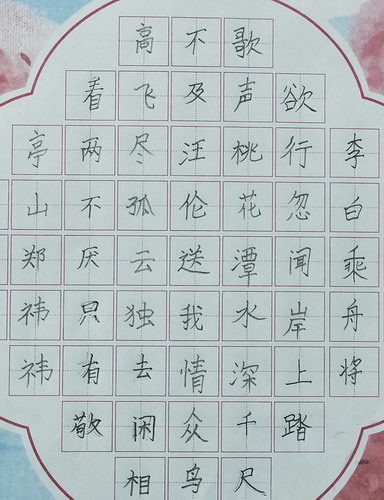 李白乘舟将
欲行忽闻岸上踏
歌声桃花潭水深千尺
不及汪伦送我情众鸟
高飞尽孤云独去闲相
看两不厌只有敬
亭山郑祎祎